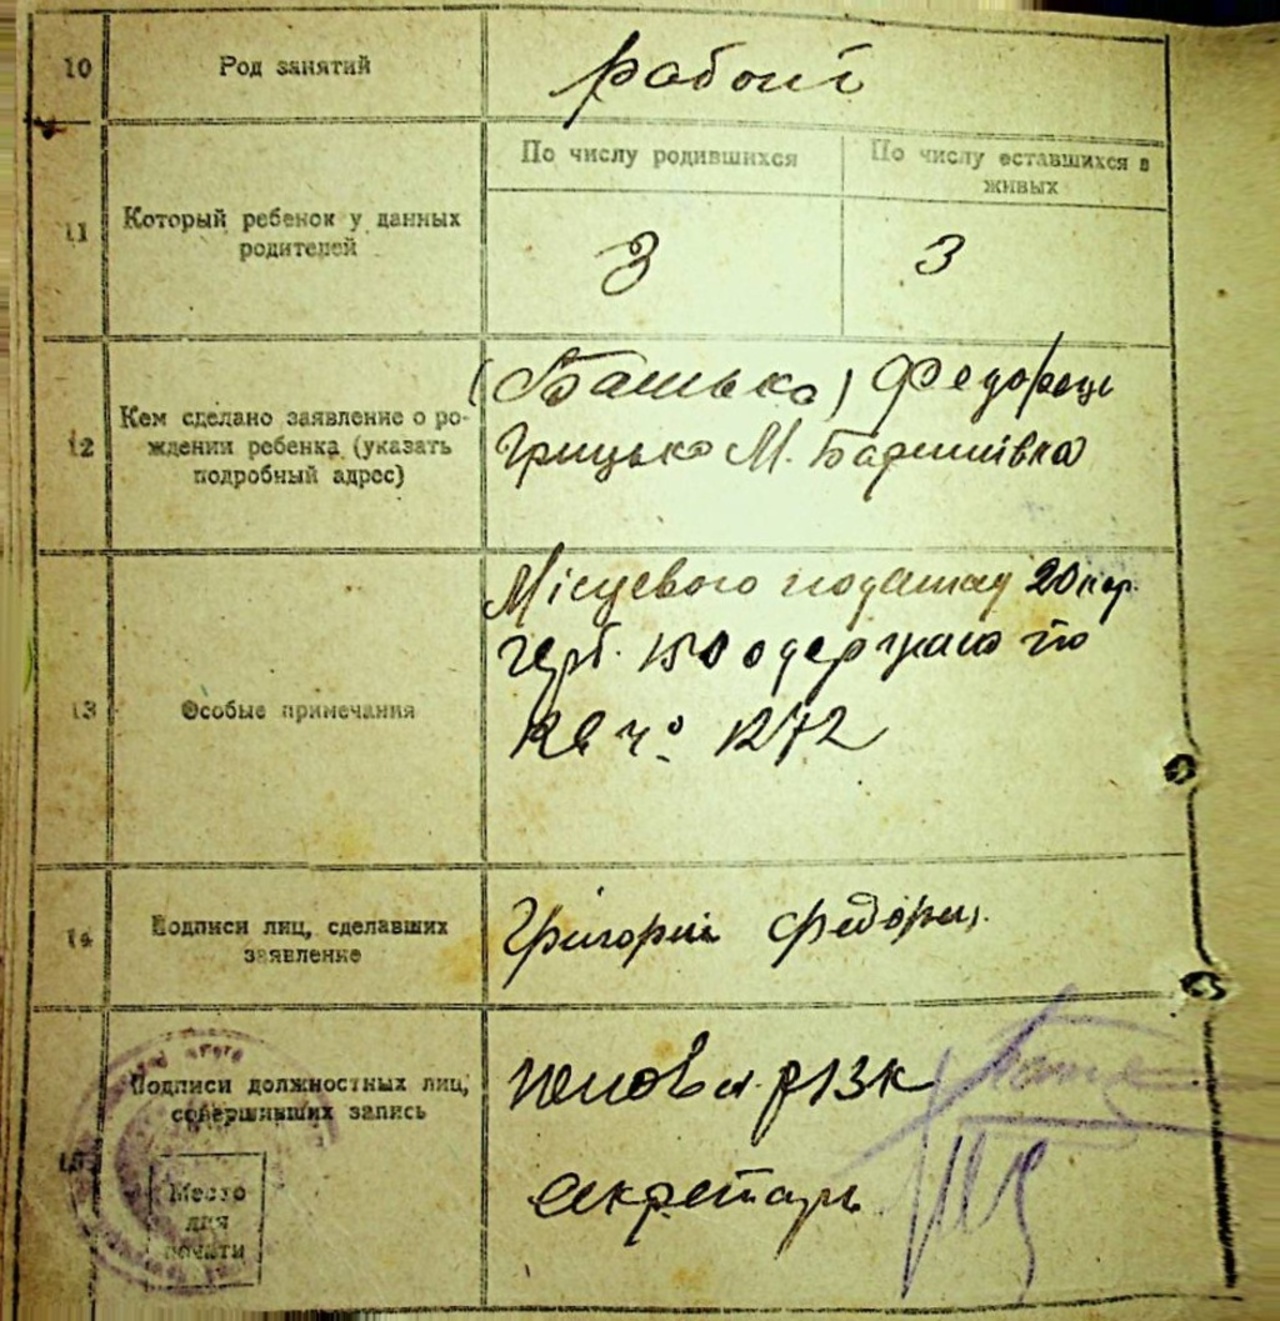 10 Род занятий робочі
11 Который ребенок у данных родителей
По числу родившихся
По числу оставшихся в живых
3 3
12 Кем сделано заявление о ро-
ждении ребенка (указать
подробный адрес)
(Батько) Федорець
Грицько М. Баришівка
13 Особые примечания
Місцевого податку 20 кар.
герб. 150 одержано по
кв. ч° 1272
14 Подписи лиц, сделавших
заявление
Григорій Федорец
15 Подписи должностных лиц,
совершивших запись
Место
для
печати
секретарь